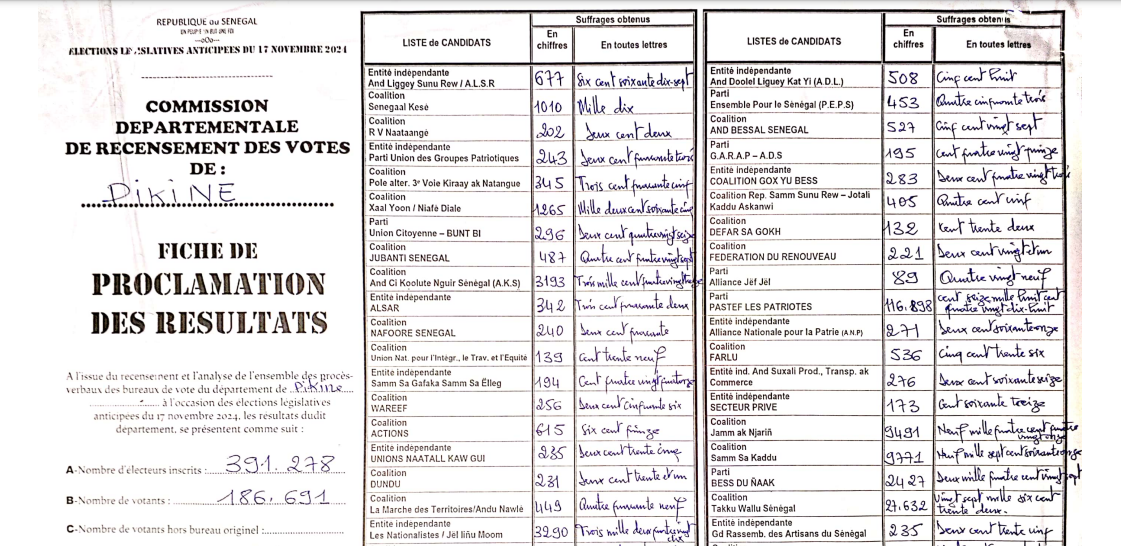 REPUBLIQUE du SENEGAL
UN PEUPLE UN BUT UNE FOI
---oOo---
ELECTIONS LEGISLATIVES ANTICIPEES DU 17 NOVEMBRE 2024
COMMISSION
DEPARTEMENTALE
DE RECENSEMENT DES VOTES
DE :
PIKINE
FICHE DE
PROCLAMATION
DES RESULTATS
A l'issue du recensement et l'analyse de l'ensemble des procès-
verbaux des bureaux de vote du département de Pikine
à l'occasion des elections législatives
anticipées du 17 novembre 2024, les résultats dudit
département, se présentent comme suit :
A-Nombre d'électeurs inscrits : 391.278
B-Nombre de votants : 186.691
C-Nombre de votants hors bureau originel :
LISTE de CANDIDATS
Suffrages obtenus
En chiffres
En toutes lettres
Entité indépendante
And Liggey Sunu Rew / A.L.S.R 677 Six cent soixante dix-sept
Coalition
Senegaal Kesé 1010 Mille dix
Coalition
R V Naataangé 202 Deux cent deux
Entité indépendante
Parti Union des Groupes Patriotiques 243 Deux cent quarante trois
Coalition
Pole alter. 3e Voie Kiraay ak Natangue 345 Trois cent quarante cinq
Coalition
Xaal Yoon / Niafé Diale 1265 Mille deux cent soixante cinq
Parti
Union Citoyenne – BUNT BI 296 Deux cent quatre vingt seize
Coalition
JUBANTI SENEGAL 487 Quatre cent quatre vingt sept
Coalition
And Ci Koolute Nguir Sénégal (A.K.S) 3193 Trois mille cent quatre vingt treize
Entité indépendante
ALSAR 342 Trois cent quarante deux
Coalition
NAFOORE SENEGAL 240 Deux cent quarante
Coalition
Union Nat. pour l'Intégr., le Trav. et l'Equité 139 Cent trente neuf
Entité indépendante
Samm Sa Gafaka Samm Sa Élleg 194 Cent quatre vingt quatorze
Coalition
WAREEF 256 Deux cent cinquante six
Coalition
ACTIONS 615 Six cent quinze
Entité indépendante
UNIONS NAATALL KAW GUI 235 Deux cent trente cinq
Coalition
DUNDU 231 Deux cent trente et un
Coalition
La Marche des Territoires/Andu Nawlé 449 Quatre quarante neuf
Entité indépendante
Les Nationalistes / Jël liñu Moom 3290 Trois mille deux quatre vingt dix
Coalition
LISTES de CANDIDATS
Suffrages obtenus
En chiffres
En toutes lettres
Entité indépendante
And Doolel Liguey Kat Yi (A.D.L.) 508 Cinq cent huit
Parti
Ensemble Pour le Sénégal (P.E.P.S) 453 Quatre cinquante trois
Coalition
AND BESSAL SENEGAL 527 Cinq cent vingt sept
Parti
G.A.R.A.P – A.D.S 195 Cent quatre vingt quinze
Entité indépendante
COALITION GOX YU BESS 283 Deux cent quatre vingt trois
Coalition Rep. Samm Sunu Rew – Jotali
Kaddu Askanwi 405 Quatre cent cinq
Coalition
DEFAR SA GOKH 132 Cent trente deux
Coalition
FEDERATION DU RENOUVEAU 221 Deux cent vingt et un
Parti
Alliance Jëf Jël 89 Quatre vingt neuf
Parti
PASTEF LES PATRIOTES 116.898 cent seize mille huit cent
quatre vingt dix-huit
Entité indépendante
Alliance Nationale pour la Patrie (A.N.P) 271 Deux cent soixante onze
Coalition
FARLU 536 Cinq cent trente six
Entité ind. And Suxali Prod., Transp. ak
Commerce 276 Deux cent soixante seize
Entité indépendante
SECTEUR PRIVE 173 Cent soixante treize
Coalition
Jamm ak Njariñ 9491 Neuf mille quatre cent quatre
vingt onze
Coalition
Samm Sa Kaddu 9771 Neuf mille sept cent soixante onze
Parti
BESS DU ÑAAK 2427 Deux mille quatre cent vingt sept
Coalition
Takku Wallu Sénégal 27.632 Vingt sept mille six cent
trente deux.
Entité indépendante
Gd Rassemb. des Artisans du Sénégal 235 Deux cent trente cinq
Coalition